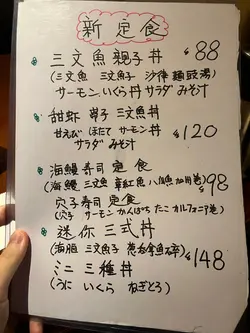 新定食
三文魚親子丼 $88
(三文魚 三文魚子 沙律 麵豉湯)
サーモンいくら丼 サラダ みそ汁
甜虾 帶子 三文魚丼
甘えび ほたて サーモン丼 $120
サラダ みそ汁
海鰻寿司定食
(海鰻 三文魚 章紅魚 八爪魚 加州巻) $98
穴子寿司定食
(穴子 サーモン かんぱち たこ カルフォルニア巻)
迷你 三式丼
(海胆 三文魚子 葱吞拿魚碎) $148
ミニ 三種丼
(うに いくら ねぎとろ)